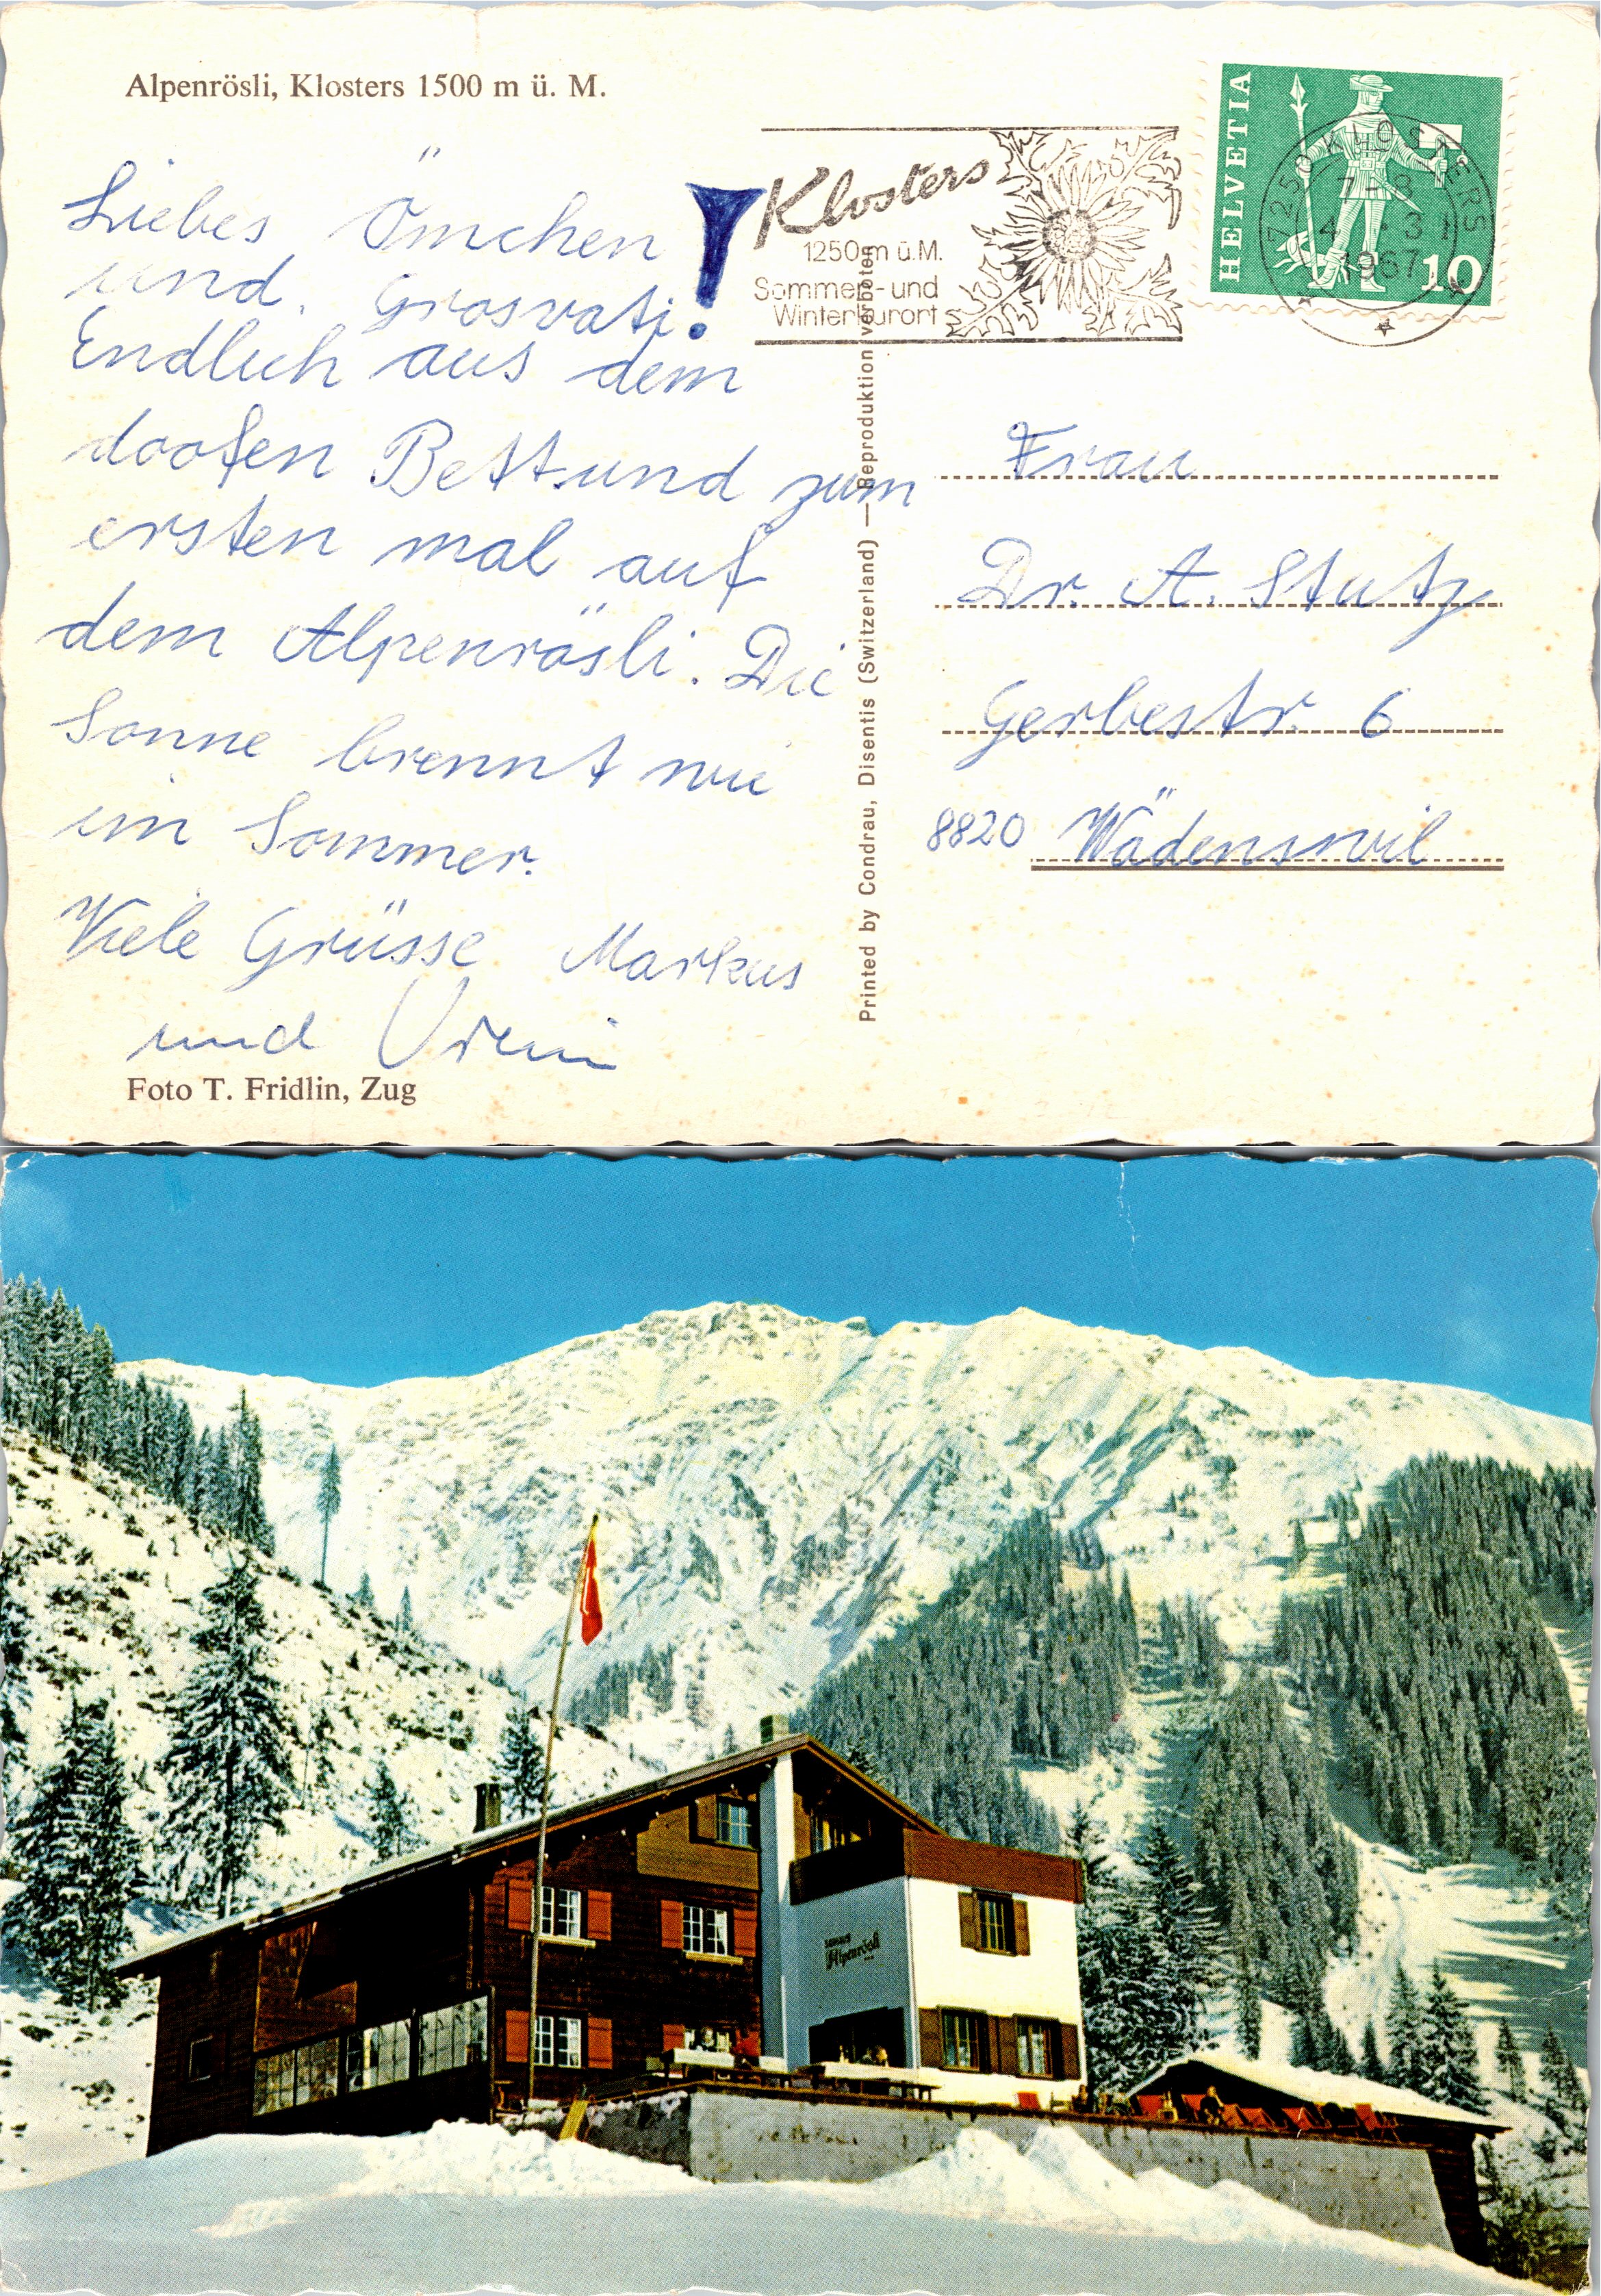 Alpenrösli, Klosters 1500 m ü. M.
Liebes Ömchen
und Grosvati!
Endlich aus dem
doofen Bett und zum
ersten mal auf
dem Alpenrösli. Die
Sonne brennt wie
im Sommer.
Viele Grüsse Markus
und
Foto T. Fridlin, Zug
Klosters
1250 m ü. M.
Sommer- und
Winterkurort
HELVETIA
10
7250 KLOSTERS
1967
Printed by Condrau, Disentis (Switzerland) — Reproduktion verboten
Frau
Dr. A. Stutz
Gerbestr. 6
8820 Wädenswil
Alpenrösli